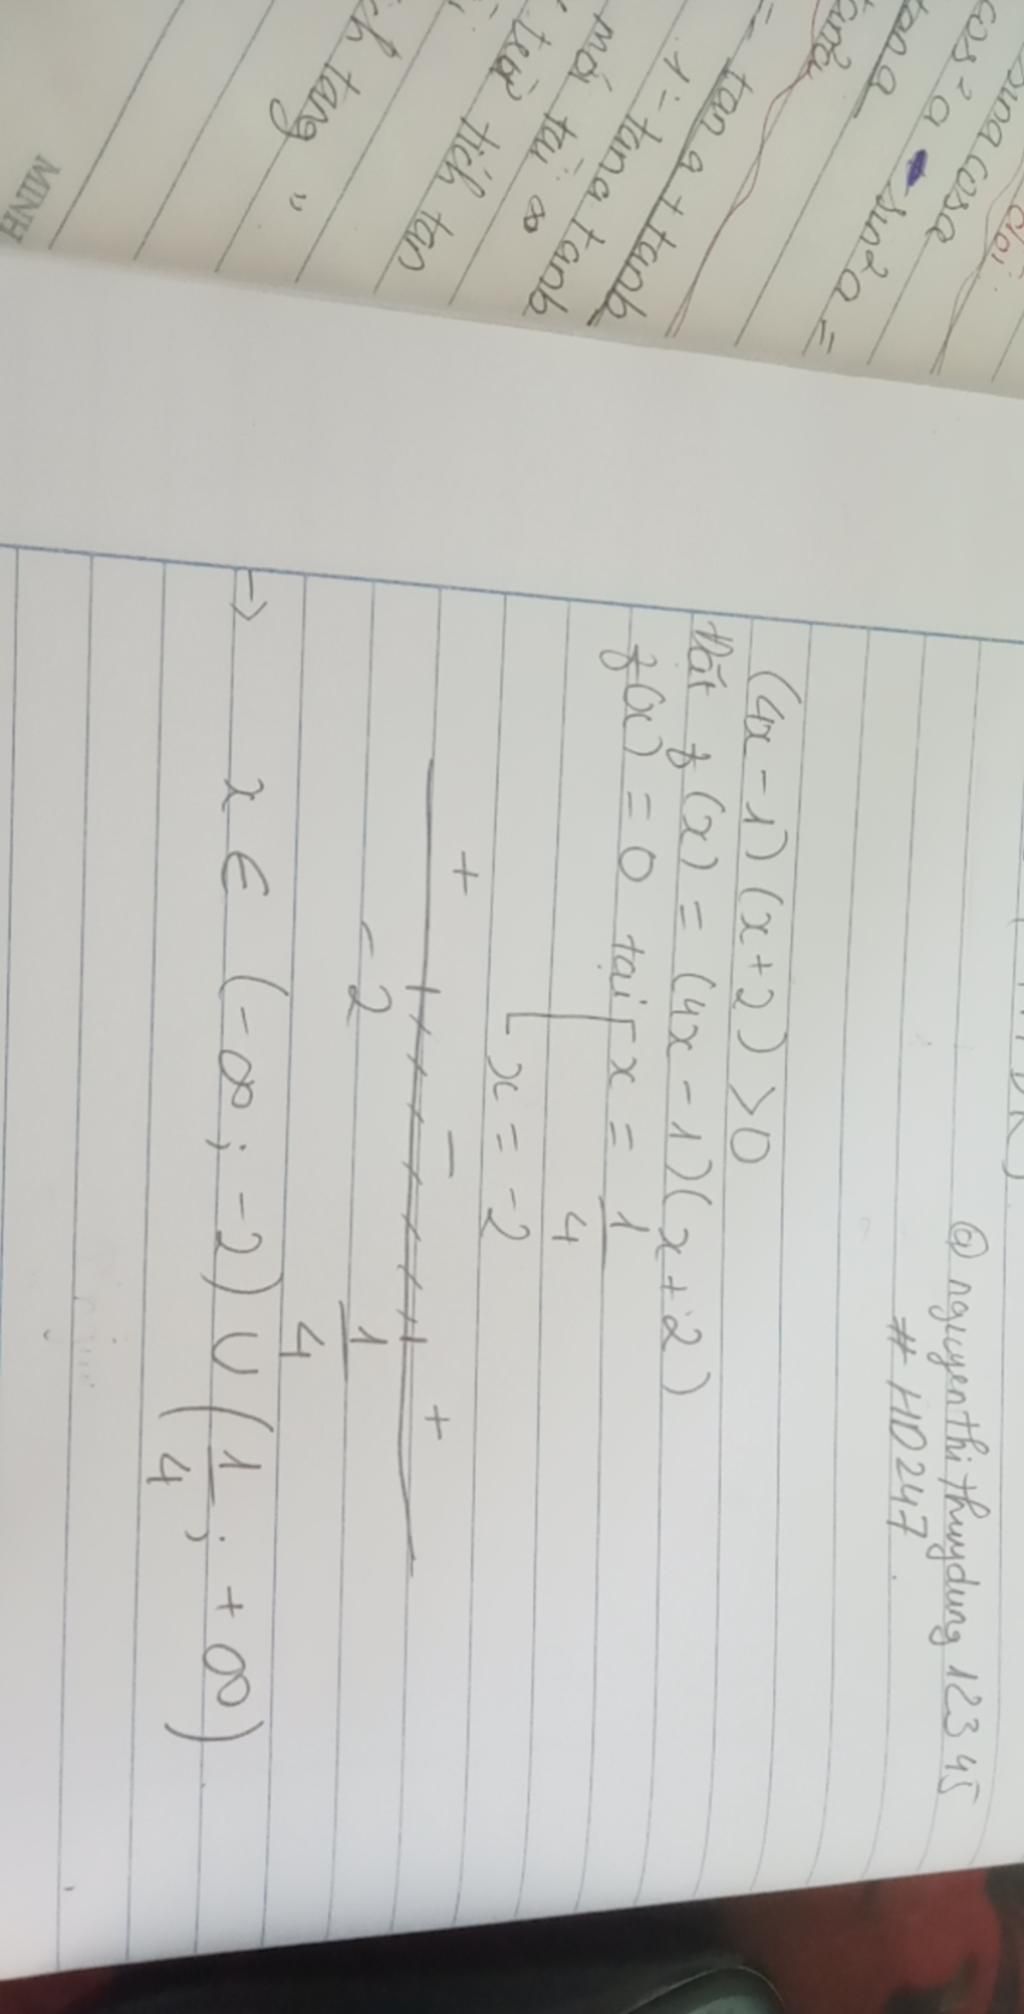 @ nguyenthithuydung 12345
# HD247
(4x - 1) (x + 2) > 0
Đặt f(x) = (4x - 1)(x + 2)
f(x) = 0 tại [ x = 1/4
x = -2
+ - +
-2 1/4
→ x ∈ (-∞; -2) ∪ (1/4; +∞)
sina cosa
cos²a - sin²a =
tana
= tan a + tanb
1 - tana tanb
tích tan
MINH